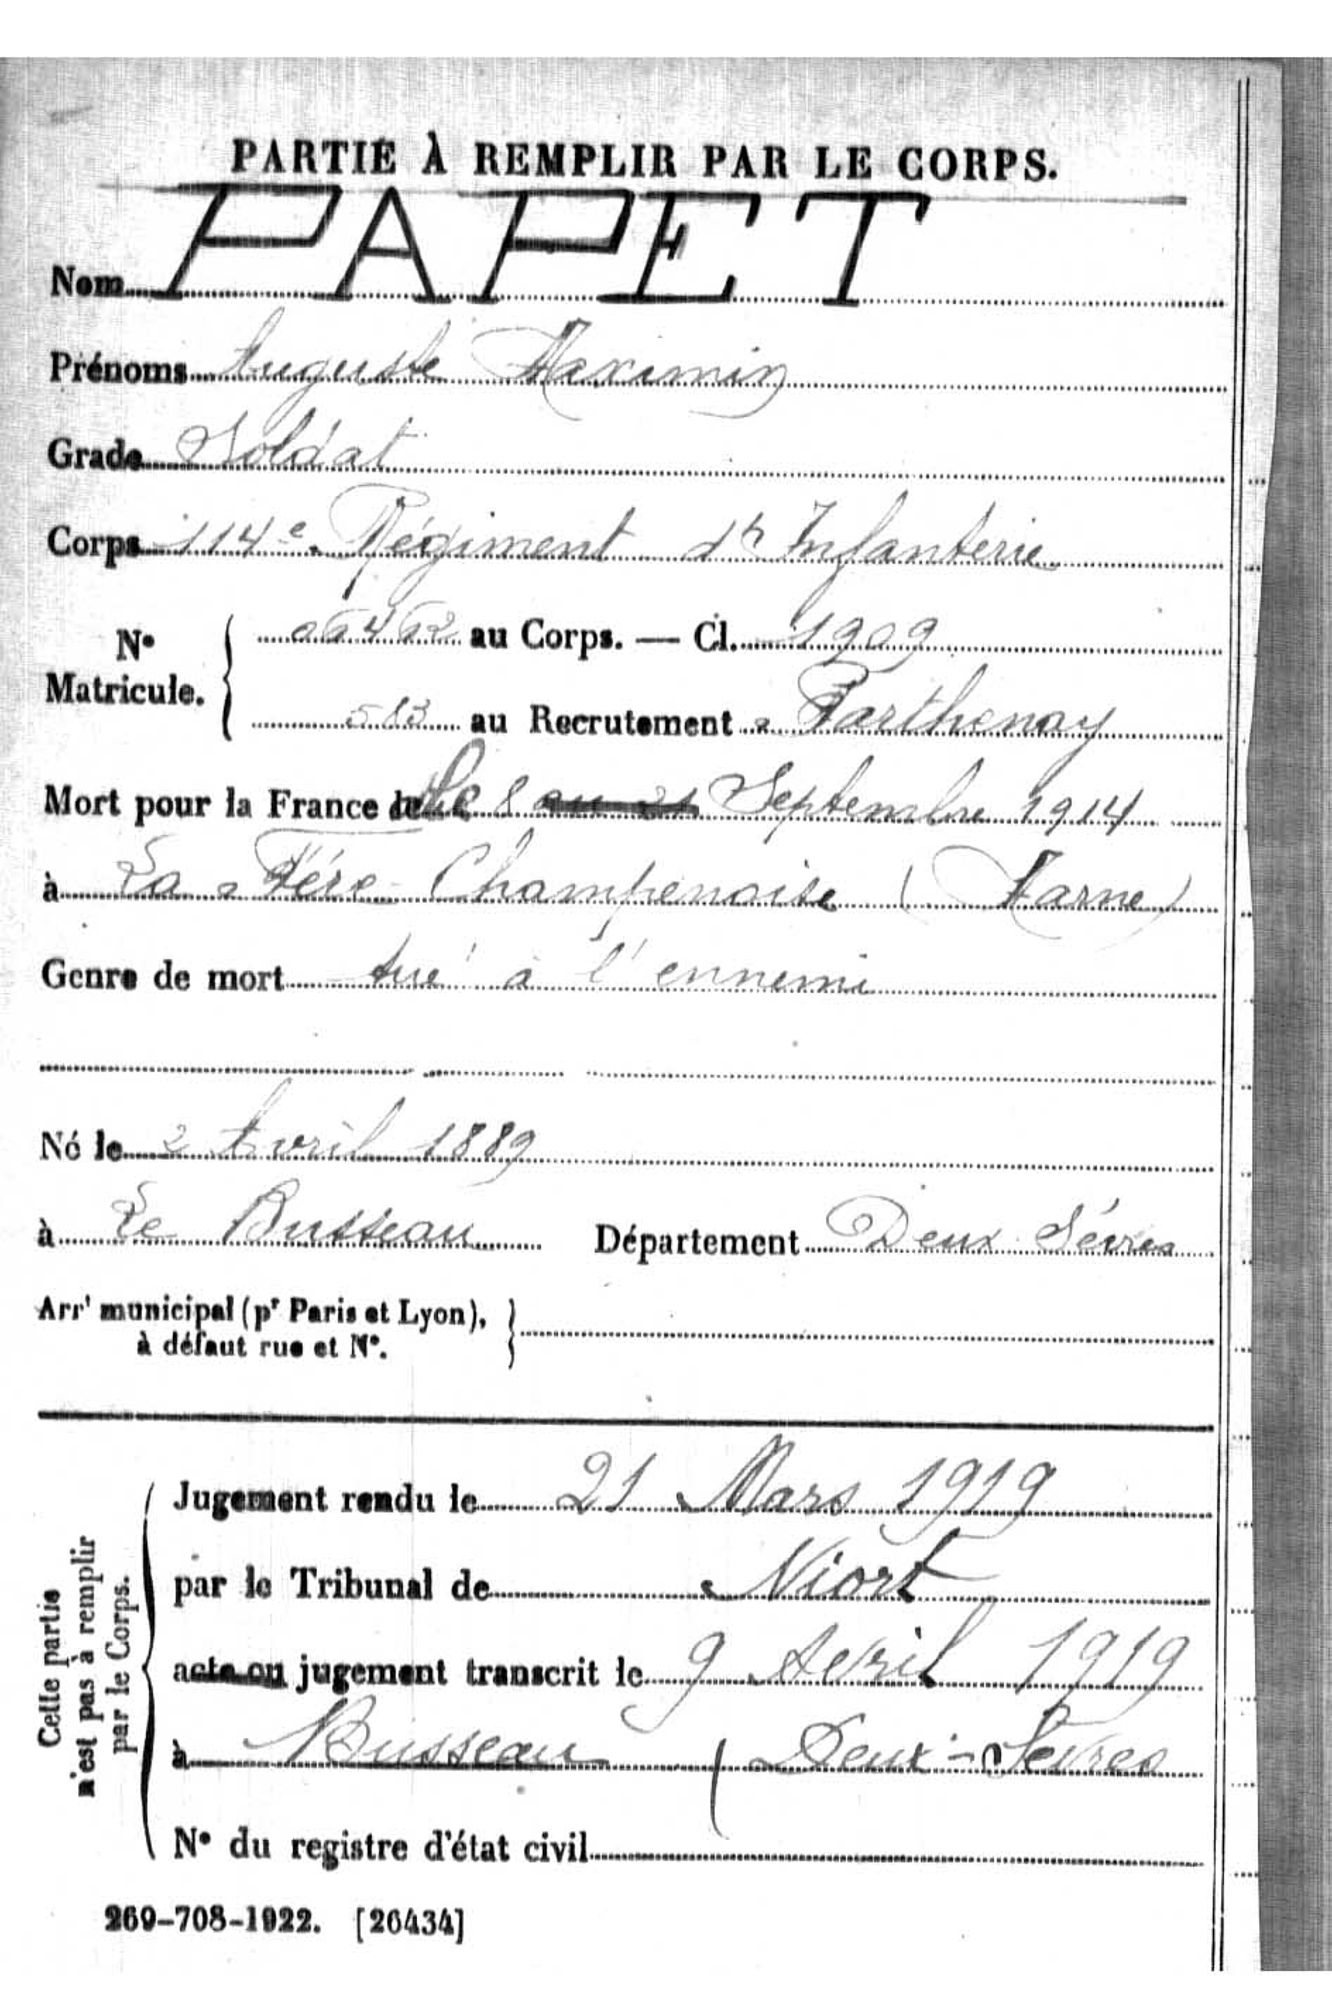 PARTIE À REMPLIR PAR LE CORPS.
Nom PAPET
Prénoms Auguste Maximin
Grade Soldat
Corps 114e Régiment d'Infanterie
N° Matricule. { au Corps. — Cl. 1909
583 au Recrutement Parthenay
Mort pour la France le 8 au 21 Septembre 1914
à La Fére Champenoise (Marne)
Genre de mort tué à l'ennemi
Né le 2 Avril 1889
à Le Busseau Département Deux Sévres
Arrt municipal (pr Paris et Lyon),
à défaut rue et N°. }
Cette partie
n'est pas à remplir
par le Corps.
Jugement rendu le 21 Mars 1919
par le Tribunal de Niort
acte ou jugement transcrit le 9 Avril 1919
à Busseau (Deux-Sèvres
N° du registre d'état civil
269-708-1922. [26434]